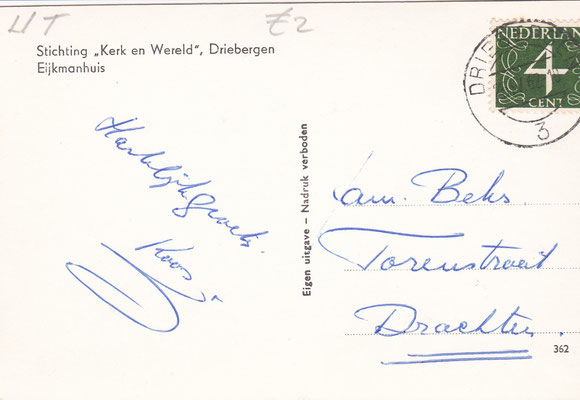 UT €2
Stichting „Kerk en Wereld", Driebergen
Eijkmanhuis
NEDERLAND
4
CENT
DRIE
3
Hartelijke groeten
Koos
Eigen uitgave – Nadruk verboden
Fam. Beks
Torenstraat
Drachten
362